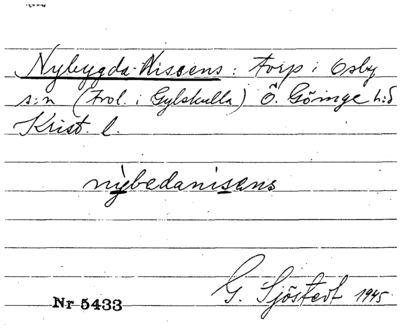 Nybygda-Nissens: torp i Osby
s:n (trol. i Gylskulla) Ö. Göinge h:d
Krist. l.
nybedanisens
G. Sjöstedt 1945.
Nr 5433